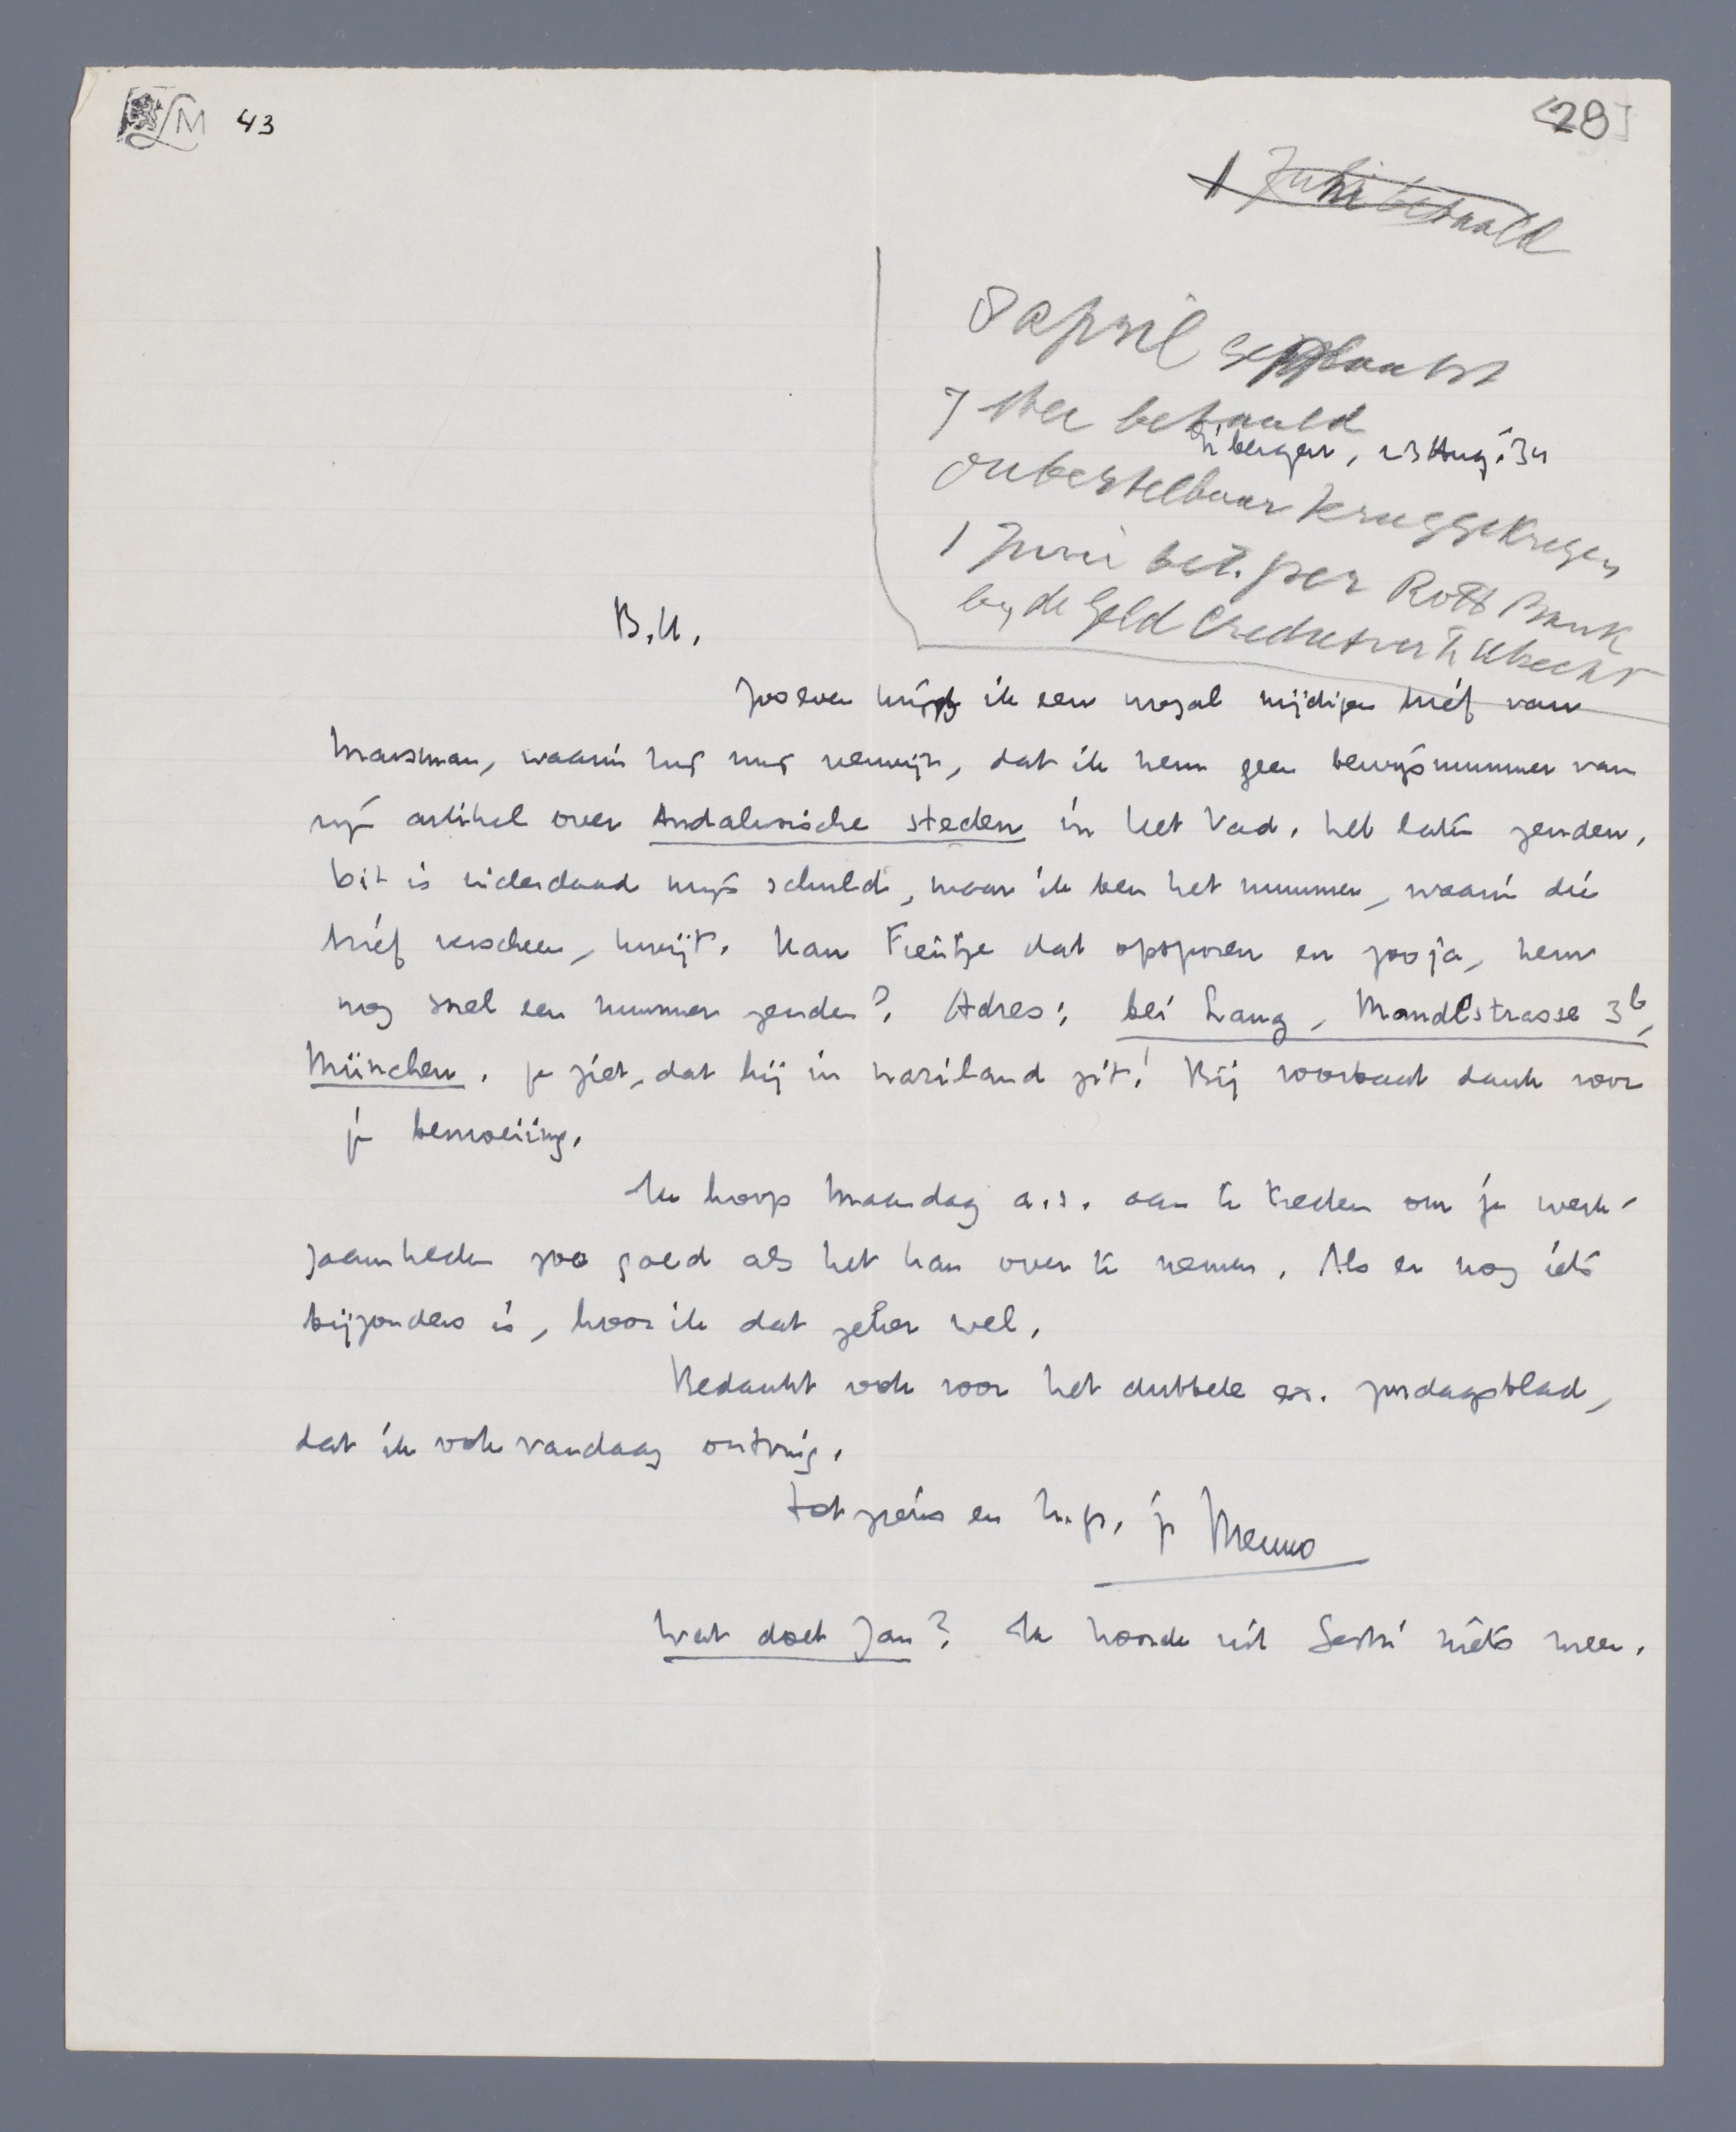 LM 43
28
1 Juni betaald
8 april geplaatst
7 Mei betaald
Eibergen, 23 Aug. '34
onbestelbaar teruggekregen
1 Juni bet. per Rott Bank
by de Geld Credietver. te Utrecht
B.U.
Zooeven krijg ik een nogal nijdigen brief van
Marsman, waarin hij mij verwijt, dat ik hem geen bewijsnummer van
zijn artikel over Andalusische steden in het Vad. heb laten zenden.
Dit is inderdaad mijn schuld, maar ik ben het nummer, waarin die
brief verscheen, kwijt. Kan Treintje dat opsporen en zoo ja, hem
nog snel een nummer zenden? Adres: bei Lang, Mandlstrasse 3b,
München. Je ziet, dat hij in naziland zit! Bij voorbaat dank voor
je bemoeiing.
Ik hoop Maandag a.s. aan te treden om je werk-
zaamheden zoo goed als het kan over te nemen. Als er nog iets
bijzonders is, hoor ik dat zeker wel.
Bedankt ook voor het dubbele ex. zondagsblad,
dat ik ook vandaag ontving.
Tot ziens en h.gr., je Menno
Wat doet Jan? Ik hoorde uit niets meer.